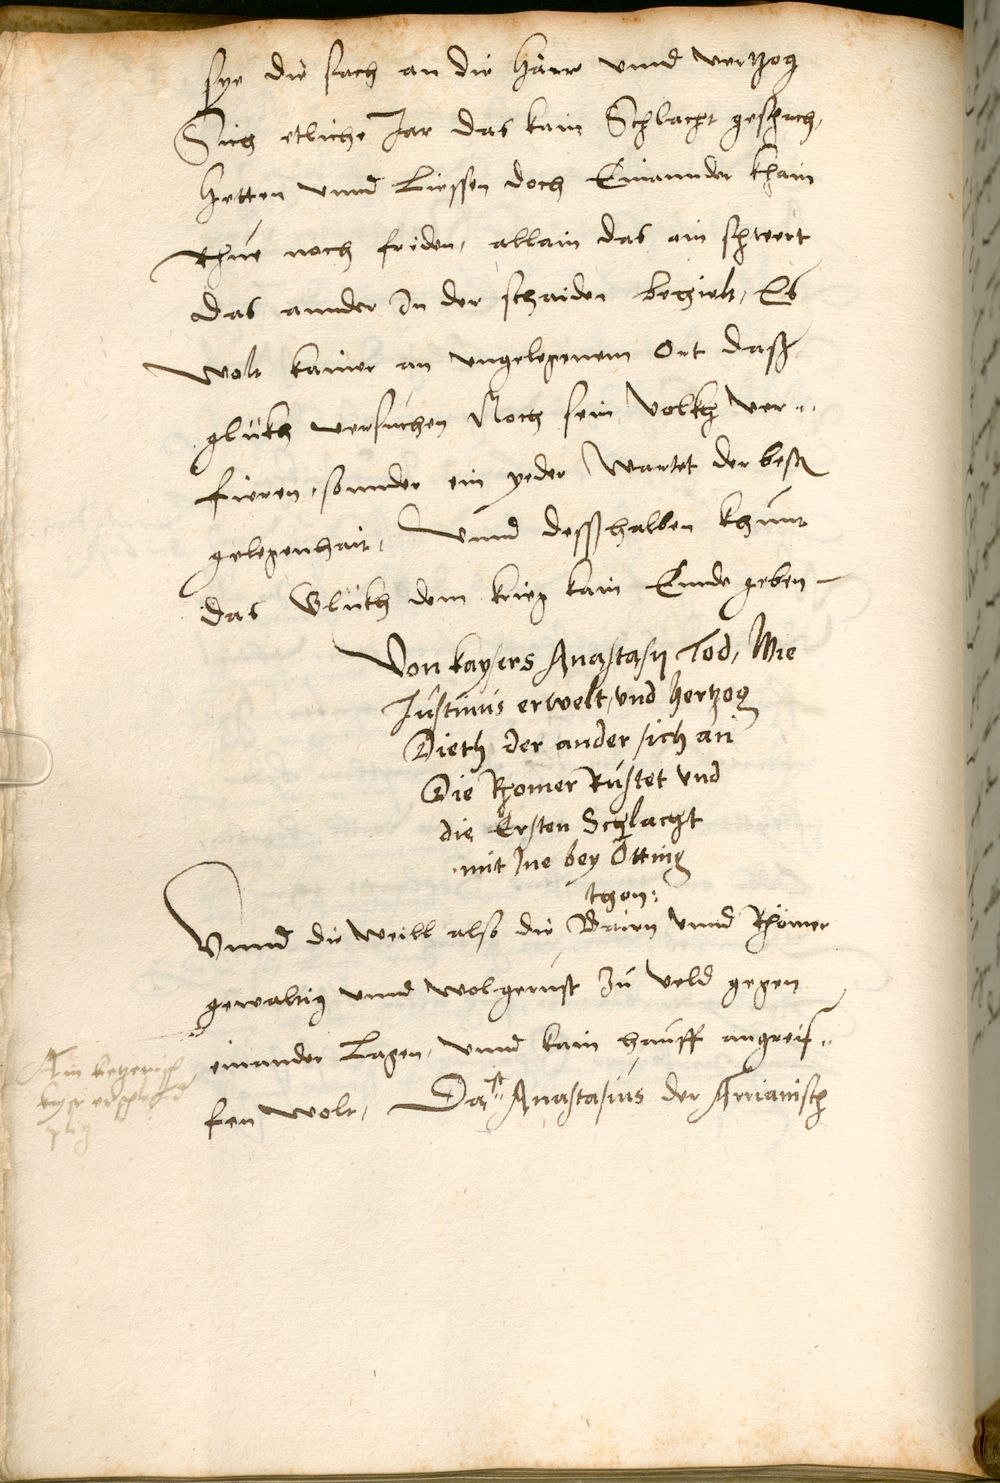 sye die sach an die Härr vnnd vertzog
Sich etliche Jar das kain Schlacht geschach,
Hetten vnnd Liessen doch Einannder khain
Rhue noch friden, allain das ain schwert
das annder In der schaiden behielt, Es
wolt kainer an vngelegenem Ort dass
glükh versuchen Noch sein Volkh ver¬
fieren, sonnder ein yeder Wartet der besten
gelegenhait, Vnnd dessshalben khunt
das Glükh dem krieg kain Ennde geben
Von kaysers Anastasy Tod, Wie
Justinus erwelt, vnd Hertzog
Dieth der ander sich an
Die Rhomer Rüstet vnd
die Ersten Schlacht
mit Ine bey Ötting
thon:
Vnnd die weill also die Bairn vnnd Rhömer
gewaltig vnnd wolgerüst zu Veld gegen
einander Lagen, vnnd kain hauff angreif¬
Ain ketzerisch
fen wolt, Da Anastasius der Arrianisch